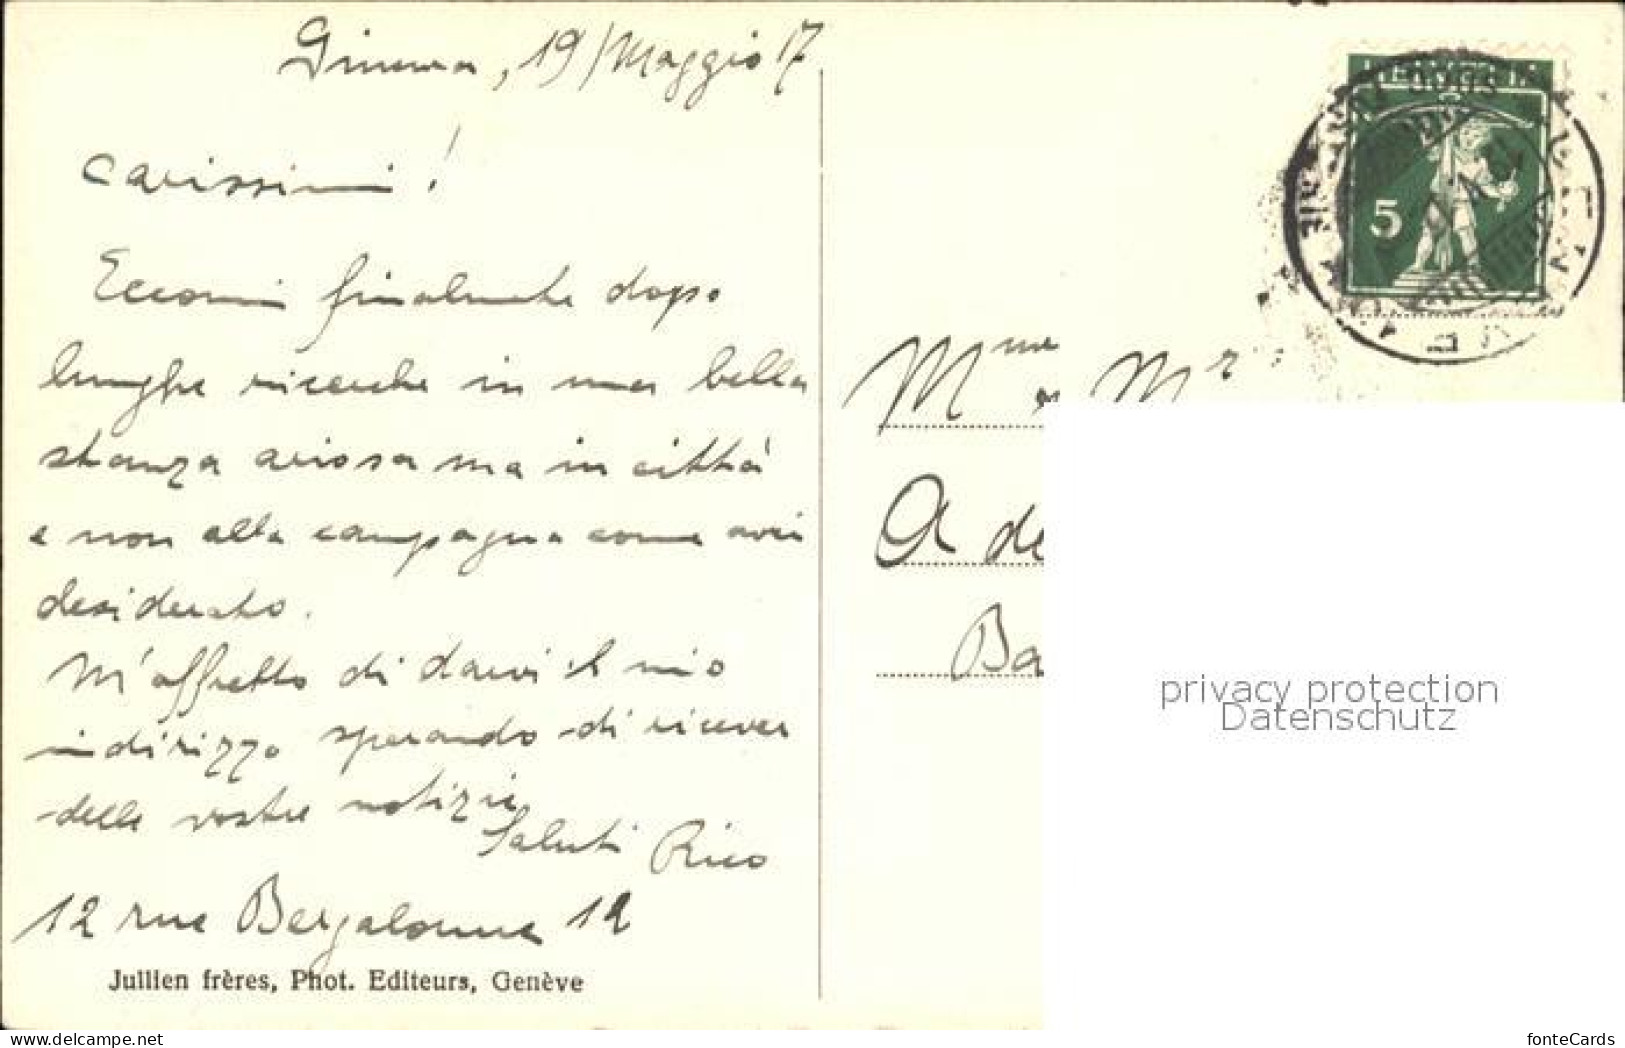 Ginevra, 19/Maggio 17
carissimi!
Eccomi finalmente dopo
lunghe ricerche in una bella
stanza ariosa ma in città
e non alla campagna come avrei
desiderato.
M'affretto di darvi il mio
indirizzo sperando di ricever
delle vostre notizie
Saluti Rico
12 rue Bergalonne 12
Jullien frères, Phot. Editeurs, Genève
HELVETIA
5
Mme e Mr
A de
Ba
privacy protection
Datenschutz
www.delcampe.net
fonteCards